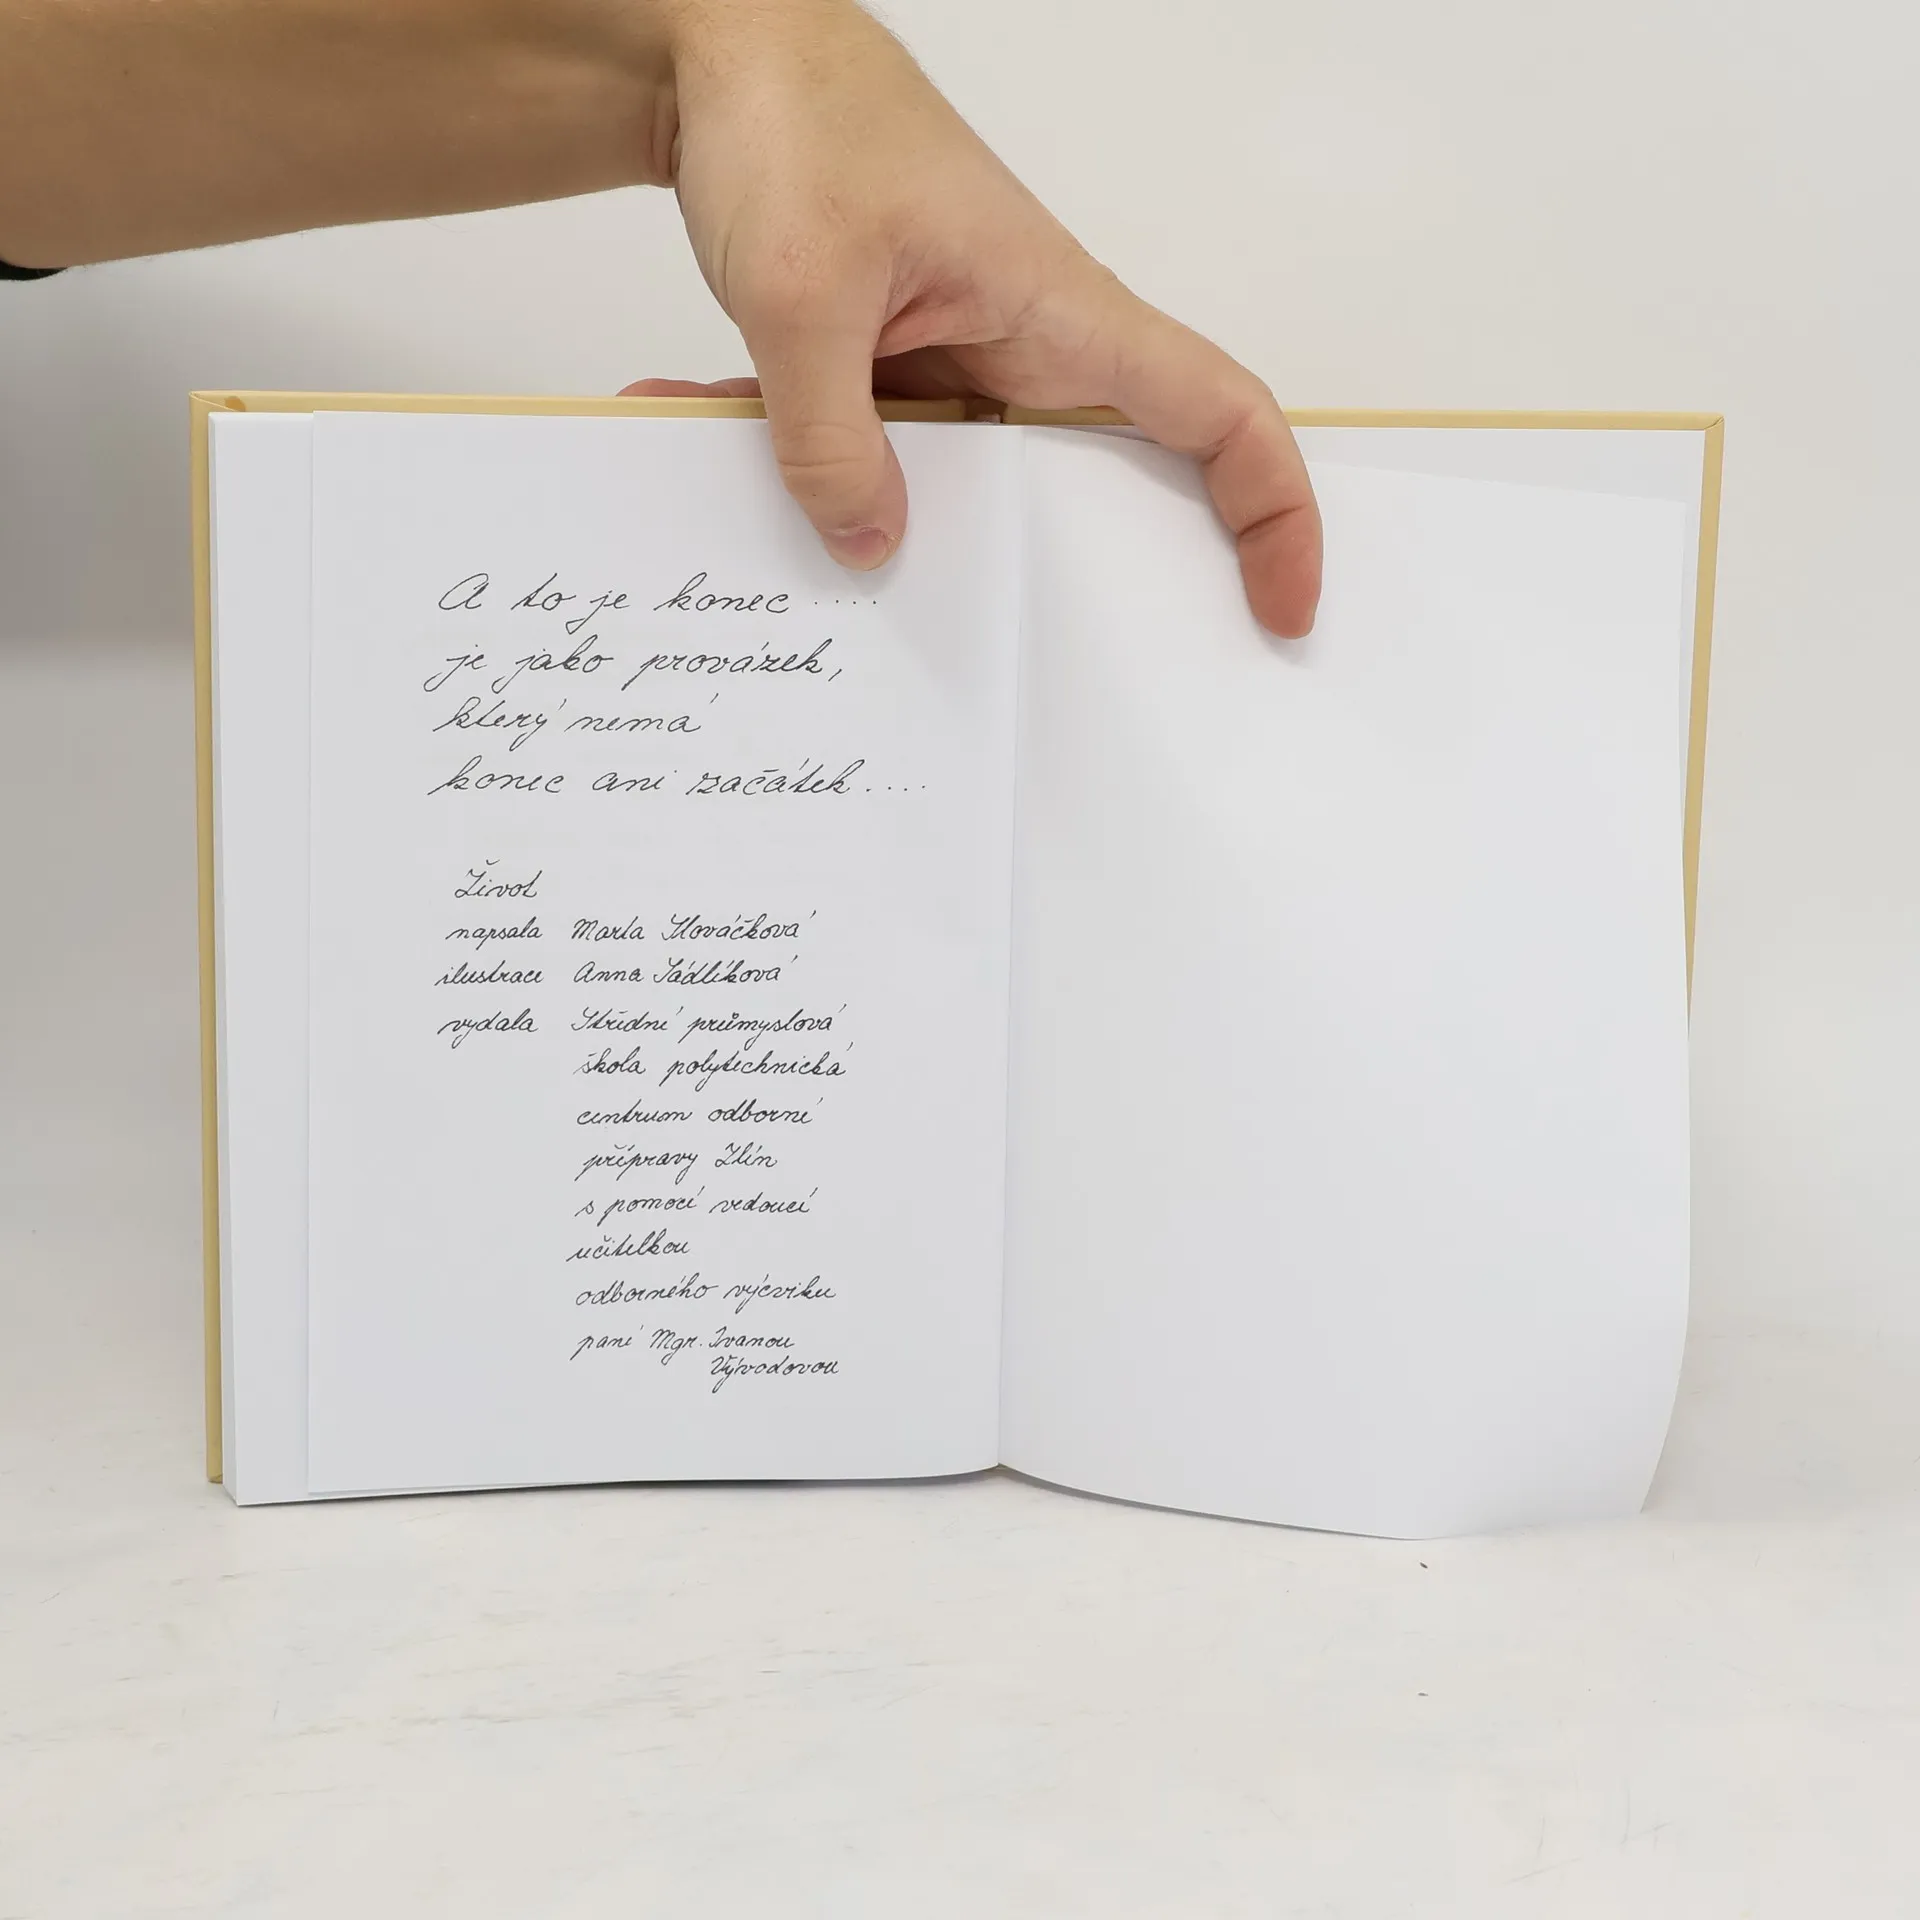 A to je konec ....
je jako provázek,
který nemá
konec ani začátek....
Život
napsala Marta Slováčková
ilustrace Anna Sádlíková
vydala Střední průmyslová
škola polytechnická
centrum odborné
přípravy Zlín
s pomocí vedoucí
učitelkou
odborného výcviku
paní Mgr. Ivanou
Vývodovou